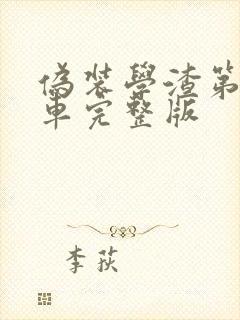 偽裝學渣第
車完整版
李荻